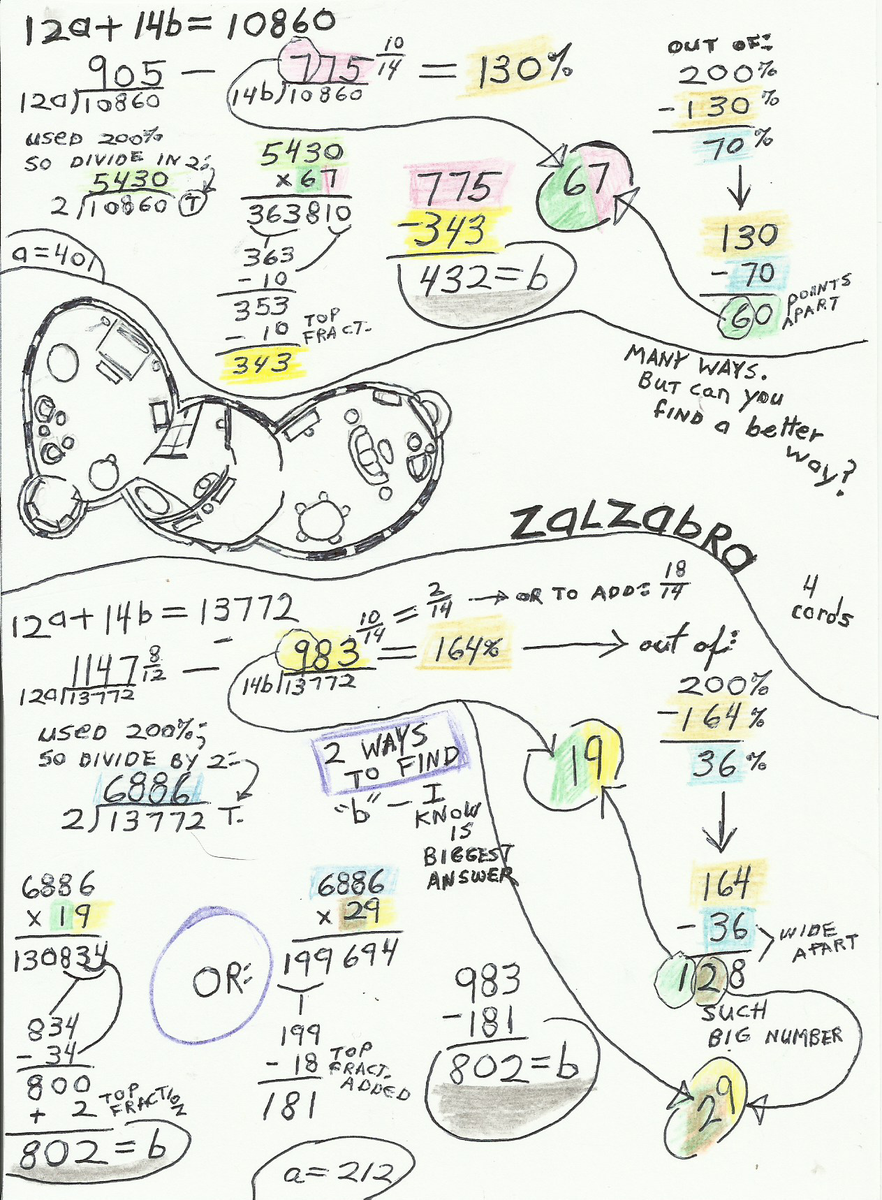 12a + 14b = 10860
905 — 775 10/14 = 130%
12a)10860 14b)10860
OUT OF:
200%
-130%
70%
130
- 70
60 POINTS APART
USED 200%
SO DIVIDE IN 2:
5430
2)10860 T
5430
x 67
363810
363
- 10
353
- 10 TOP FRACT.
343
775
-343
432 = b
67
a = 401
MANY WAYS.
BUT CAN YOU
FIND a better
way?
ZALZABRA
4
cards
12a + 14b = 13772
1147 8/12 — 983 10/14 = 2/14 → OR TO ADD: 18/14
= 164% → out of:
12a)13772 14b)13772
200%
-164%
36%
164
- 36 WIDE APART
128
SUCH
BIG NUMBER
USED 200%;
SO DIVIDE BY 2:
6886
2)13772 T.
2 WAYS
TO FIND
"b" — I
KNOW
IS
BIGGEST
ANSWER
19
6886
x 19
130834
834
- 34
800
+ 2 TOP FRACTION
802 = b
OR:
6886
x 29
199694
199
- 18 TOP FRACT. ADDED
181
983
-181
802 = b
29
a = 212